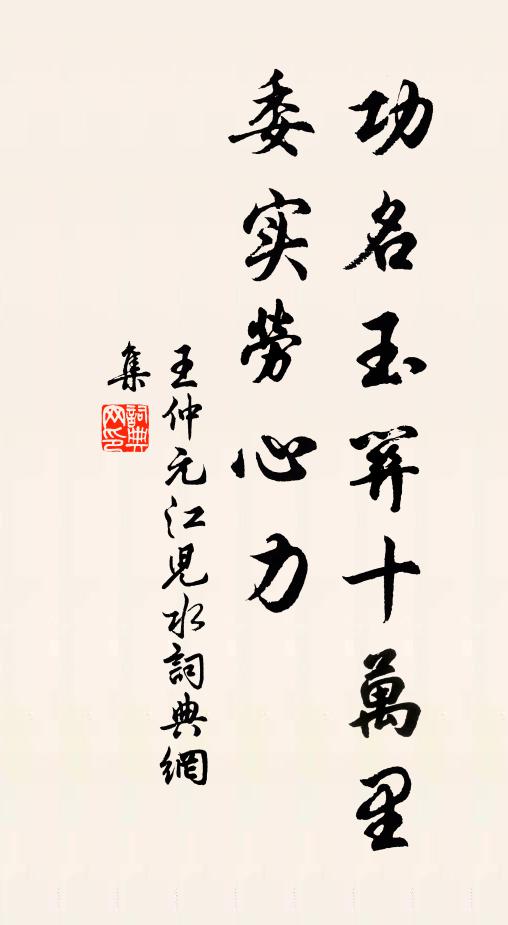 功名玉關十萬里
委实勞心力
王仲元江兒水詞典網
集
詞典
网印